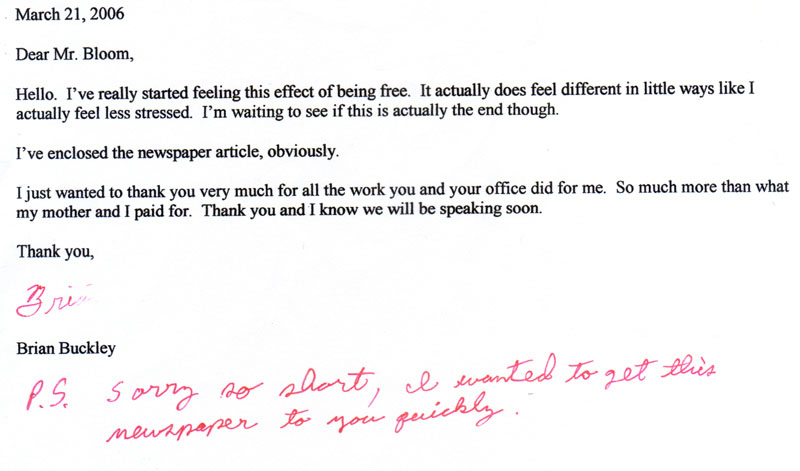 March 21, 2006
Dear Mr. Bloom,
Hello. I've really started feeling this effect of being free. It actually does feel different in little ways like I
actually feel less stressed. I'm waiting to see if this is actually the end though.
I've enclosed the newspaper article, obviously.
I just wanted to thank you very much for all the work you and your office did for me. So much more than what
my mother and I paid for. Thank you and I know we will be speaking soon.
Thank you,
Bri
Brian Buckley
P.S. Sorry so short, I wanted to get this
newspaper to you quickly.